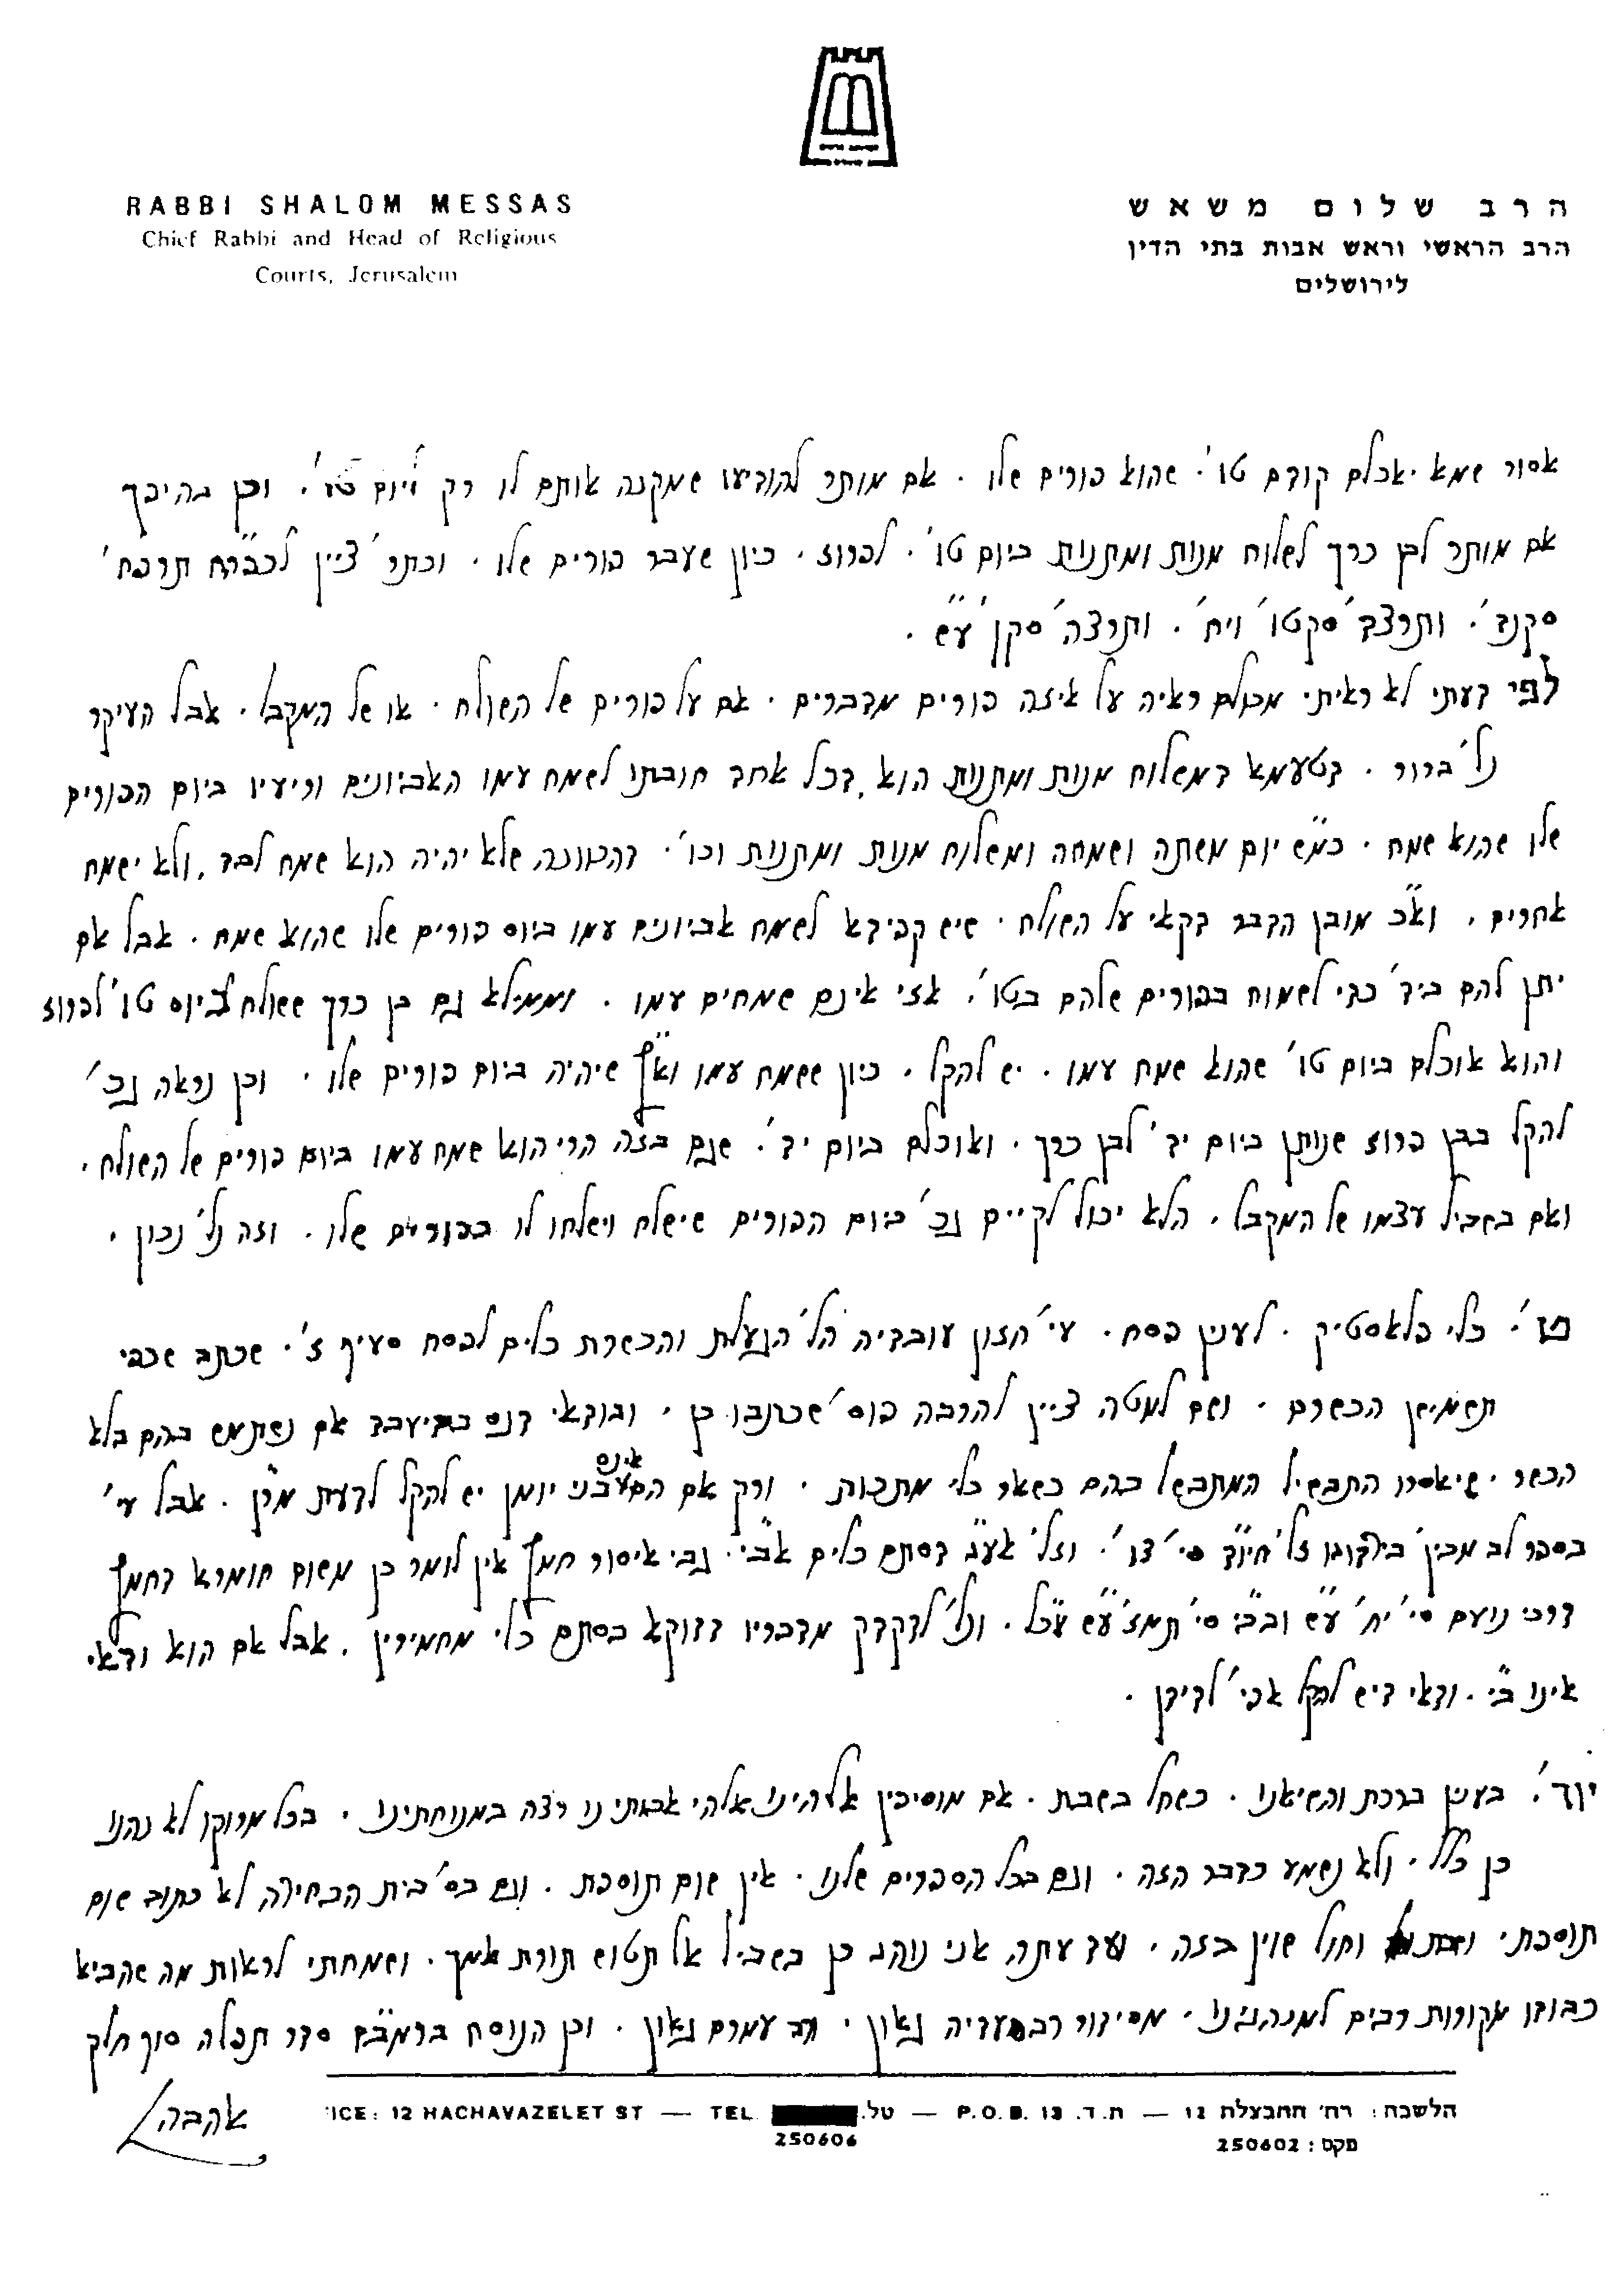 RABBI SHALOM MESSAS
Chief Rabbi and Head of Religious
Courts, Jerusalem
הרב שלום משאש
הרב הראשי וראש אבות בתי הדין
לירושלים
אסור שמא יאכלם קודם טו'. שהוא פורים שלו. אם מותר להודיעו שמקנה אותם לו רק ליום טו'. וכן בהיפך
אם מותר לבן כרך לשלוח מנות ומתנות ביום טו'. לפרוז. כיון שעבר פורים שלו. וכתר' ציין לכה"ח תרפח'
סקנד'. ותרצב' סקטו' ויח'. ותרצה' סקן' ע"ש.
לפי דעתי לא ראיתי מכולם ראיה על איזה פורים מדברים. אם על פורים של השולח. או של המקבל. אבל העיקר
נל' ברור. דטעמא דמשלוח מנות ומתנות הוא, דכל אחד חובתו לשמח עמו האביונים וריעיו ביום הפורים
שלו שהוא שמח. כמ"ש יום משתה ושמחה ומשלוח מנות ומתנות וכו'. דהכוונה שלא יהיה הוא שמח לבד, ולא ישמח
אחרים. וא"כ מובן הדבר דקאי על השולח. שיש קפידא לשמח אביונים עמו ביום פורים שלו שהוא שמח. אבל אם
יתן להם ביד' כדי לשמוח בפורים שלהם בטו'. אזי אינם שמחים עמו. וממילא גם בן כרך ששולח ביום טו' לפרוז
והוא אוכלם ביום טו' שהוא שמח עמו. יש להקל. כיון ששמח עמו שיהיה ביום פורים שלו. וכן נראה גכ'
להקל בבן פרוז שנותן ביום יד' לבן כרך. ואוכלם ביום יד'. שגם בזה הרי הוא שמח עמו ביום פורים של השולח.
ואם בשביל עצמו של המקבל. הלא יכול לקיים גכ' ביום הפורים שישלח וישלחו לו בפורים שלו. וזה נל' נכון.
כלי פלאסטיק. לענין פסח. עי' חזון עובדיה הל' הגעלת והכשרת כלים לפסח סעיף ז'. שכתב שכפי
תשמישן הכשרם. ושם למטה ציין להרבה פוס' שכתבו כן. ובודאי דגם בדיעבד אם נשתמש בהם בלא
הכשר. שיאסרו התבשיל המתבשל בהם כשאר כלי מתכות. ורק אם אינם בני יומן יש להקל לדעת מרן. אבל עי'
בספר לב מבין זל' חיו"ד סי' צו'. וזל' אע"ג דסתם כלים אב"י. גבי איסור חמץ אין לומר כן משום חומרא דחמץ
דרכי נועם סי' יח' ע"ש סי' תמז' ע"ש עכ"ל. ונל' לדקדק מדבריו דדוקא בסתם כלי מחמירין. אבל אם הוא ודאי
אינו ב"י. ודאי דיש להקל אפי' לדידן.
יוד'. בענין ברכת והשיאנו. כשחל בשבת. אם מוסיפין אלהינו ואלהי אבותינו רצה במנוחתינו. בכל מרוקו לא נהגו
כן כלל. ולא נשמע כדבר הזה. וגם בכל הספרים שלנו. אין שום תוספת. וגם בס' בית הבחירה לא כתוב שום
תוספת. וחול שוין בזה. ועד עתה אני נוהג כן בשביל אל תטוש תורת אמך. ושמחתי לראות מה שהביא
כבודו מקורות רבים למנהגינו. מסידור רב סעדיה גאון. רב עמרם גאון. וכן הנוסח ברמב"ם סדר תפלה סוף חלק
אהבה
ICE: 12 HACHAVAZELET ST — TEL. טל. — P.O.B. 13 ת.ד. — הלשכה: רח' החבצלת 12
250606
פקס: 250602